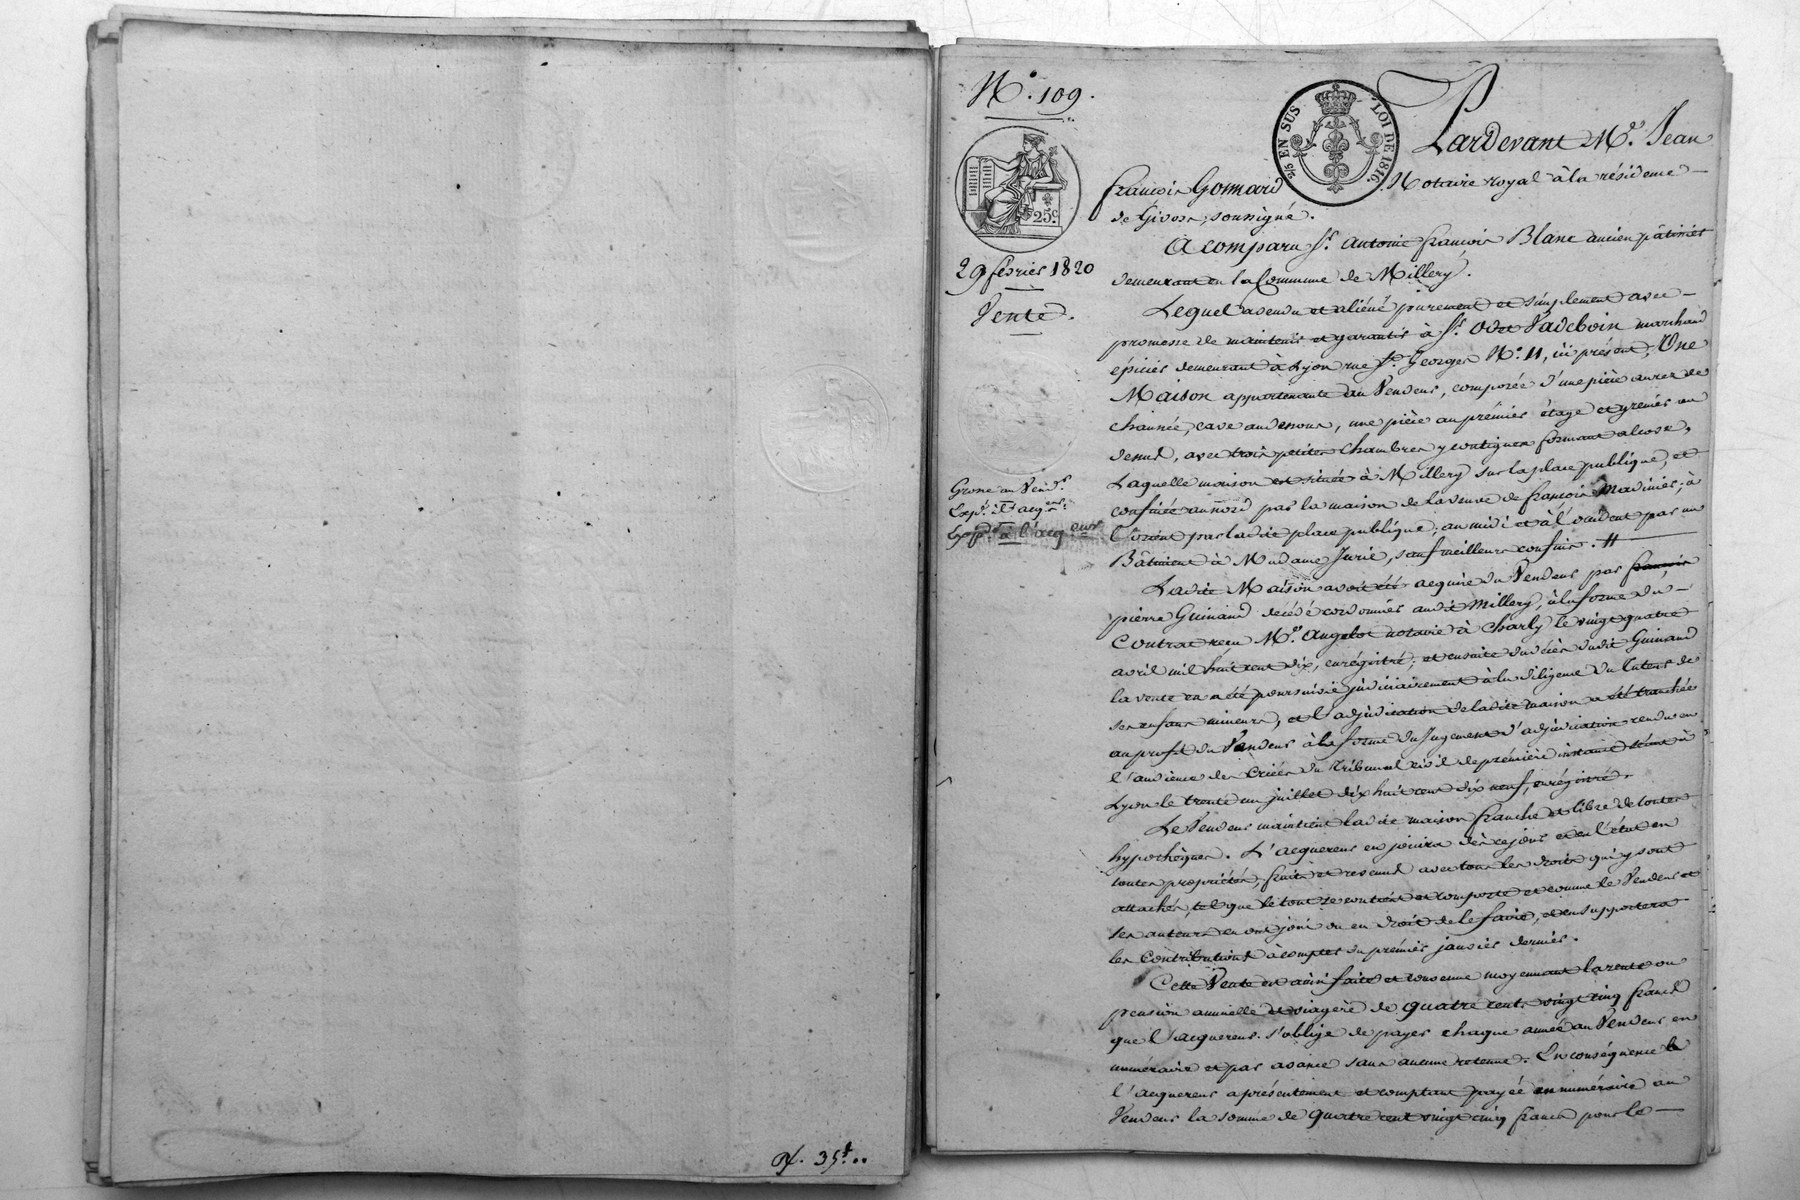 R. 35f..
N.° 109.
25c
29 février 1820
Vente.
Grosse au Vendr
Expn. à l'acqeur
2/5 EN SUS LOI DE 1816.
Pardevant Me. Jean
françois Gomard Notaire royal à la résidence
de Givors, soussigné.
A comparu Sr. Antoine françois Blanc ancien pâtissier
demeurant en la Commune de Millery.
Lequel a vendu et aliéné purement et simplement avec
promesse de maintenir et garantir à Sr. Odet Vadeboin marchand
épicier demeurant à Lyon rue St. Georges N.° 11, ici présent; Une
Maison appartenante au Vendeur, composée d'une pièce au rez de
chaussée, cave au dessous, une pièce au prémier étage et grenier au
dessus, avec trois petites chambres y contigues formant alcove,
Laquelle maison est située à Millery sur la place publique, et
confinée au nord par la maison de la veuve de françois Madinier; à
l'orient par ladite place publique; au midi et à l'occident par un
Bâtiment à Madame Jurie, sauf meilleurs confins. //
Ladite Maison avoit été acquise du Vendeur par françois
pierre Guinand décédé cordonnier audit Millery, à la forme du
Contrat reçu Me. Angelot notaire à Charly le vingt quatre
avril mil huit cent dix, enrégistré; et ensuite du décès dudit Guinand
la vente en a été poursuivie judiciairement à la diligence du tuteur de
ses enfans mineurs, et l'adjudication de ladite maison a été tranchée
au profit du Vendeur à la forme du Jugement d'adjudication rendu en
l'audience des Criées du Tribunal civil de prémière instance séant à
Lyon le trente un juillet dix huit cent dix neuf, enrégistré.
Le Vendeur maintient ladite maison franche et libre de toutes
hypothèques. L'acquereur en jouira dès ce jour et en l'état en
toutes propriétés, fruits et revenus avec tous les droits qui y sont
attachés, tel que le tout se contient et comporte et comme le Vendeur et
ses auteurs en ont joui ou eu droit de le faire, et en supportera
les Contributions à compter du prémier janvier dernier.
Cette Vente est ainsi faite et convenue moyennant la rente ou
pension annuelle et viagère de quatre cent vingt cinq francs
que l'acquereur s'oblige de payer chaque année au Vendeur en
numéraire et par avance sans aucune retenue. En conséquence
l'acquereur a présentement et comptant payé en numéraire au
Vendeur la somme de quatre cent vingt cinq francs pour le